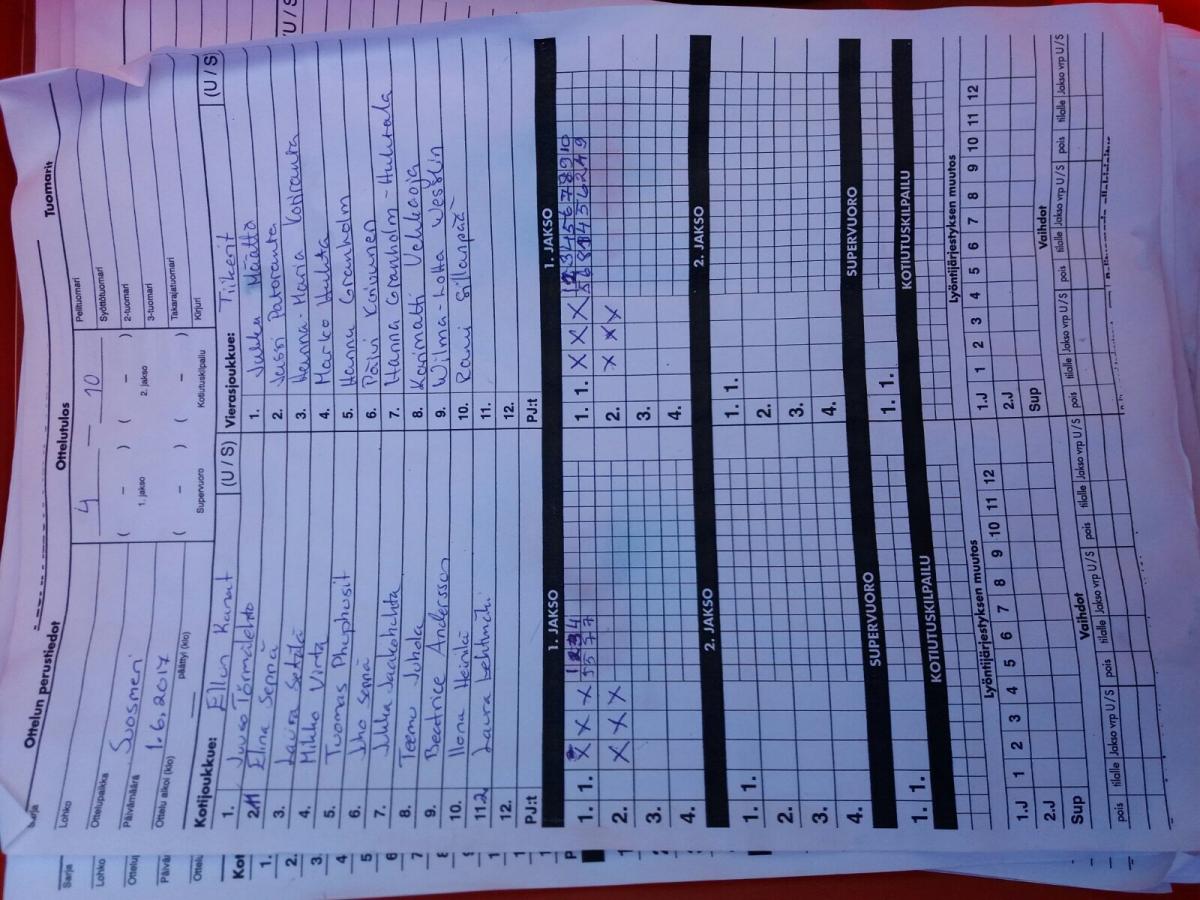 Ottelun perustiedot
Ottelutulos
Tuomarit
Lohko
4 — 10
Pelituomari
Ottelupaikka Suosmeri
Syöttötuomari
Päivämäärä 1.6.2017
( – ) ( – )
2-tuomari
1. jakso 2. jakso
3-tuomari
Ottelu alkoi (klo)
päättyi (klo)
( – ) ( – )
Takarajatuomari
Supervuoro Kotiutuskilpailu
Kirjuri
Kotijoukkue: Ellun Kanat (U / S)
1. Juuso Törmälehto
2. Elina Seppä
3. Laura Setälä
4. Mikko Virta
5. Tuomas
6. Juho Seppä
7. Jukka Jaakohuhta
8. Teemu Juhola
9. Beatrice Andersson
10. Ilona Heinilä
11. Laura Lehtimäki
12.
PJ:t
Vierasjoukkue: Tiikerit (U / S)
1. Jukka Määttä
2. Jussi Pataranta
3. Hanna-Maria Kotiranta
4. Marko Huhta
5. Hannu Granholm
6. Päivi Koivunen
7. Hanna Granholm-Huhtala
8. Karimatti Vehkaoja
9. Wilma-Lotta Wesslin
10. Rami Sillanpää
11.
12.
PJ:t
1. JAKSO 1. JAKSO
1. 1. X X X 1 2 3 4
5 5 7 7
2. X X X
3.
4.
1. 1. X X X 1 2 3 4 5 6 7 8 9 10
2. X X X
3.
4.
2. JAKSO 2. JAKSO
1. 1. 1. 1.
2. 2.
3. 3.
4. 4.
SUPERVUORO SUPERVUORO
1. 1. 1. 1.
KOTIUTUSKILPAILU KOTIUTUSKILPAILU
Lyöntijärjestyksen muutos Lyöntijärjestyksen muutos
1.J 1 2 3 4 5 6 7 8 9 10 11 12
2.J
Sup
1.J 1 2 3 4 5 6 7 8 9 10 11 12
2.J
Sup
Vaihdot Vaihdot
pois tilalle Jakso vrp U / S pois tilalle Jakso vrp U / S pois tilalle Jakso vrp U / S
pois tilalle Jakso vrp U / S pois tilalle Jakso vrp U / S pois tilalle Jakso vrp U / S
Sarja
Lohko